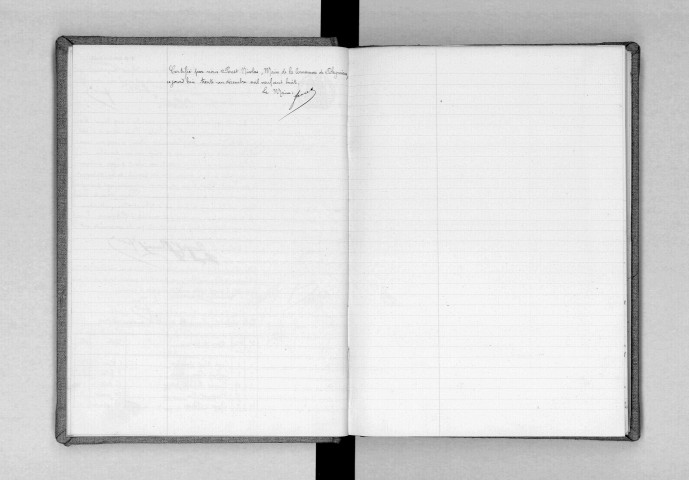 Certifié par nous Nicolas, Maire de la Commune de
ce jourd'hui trente un décembre mil neuf cent huit.
Le Maire,